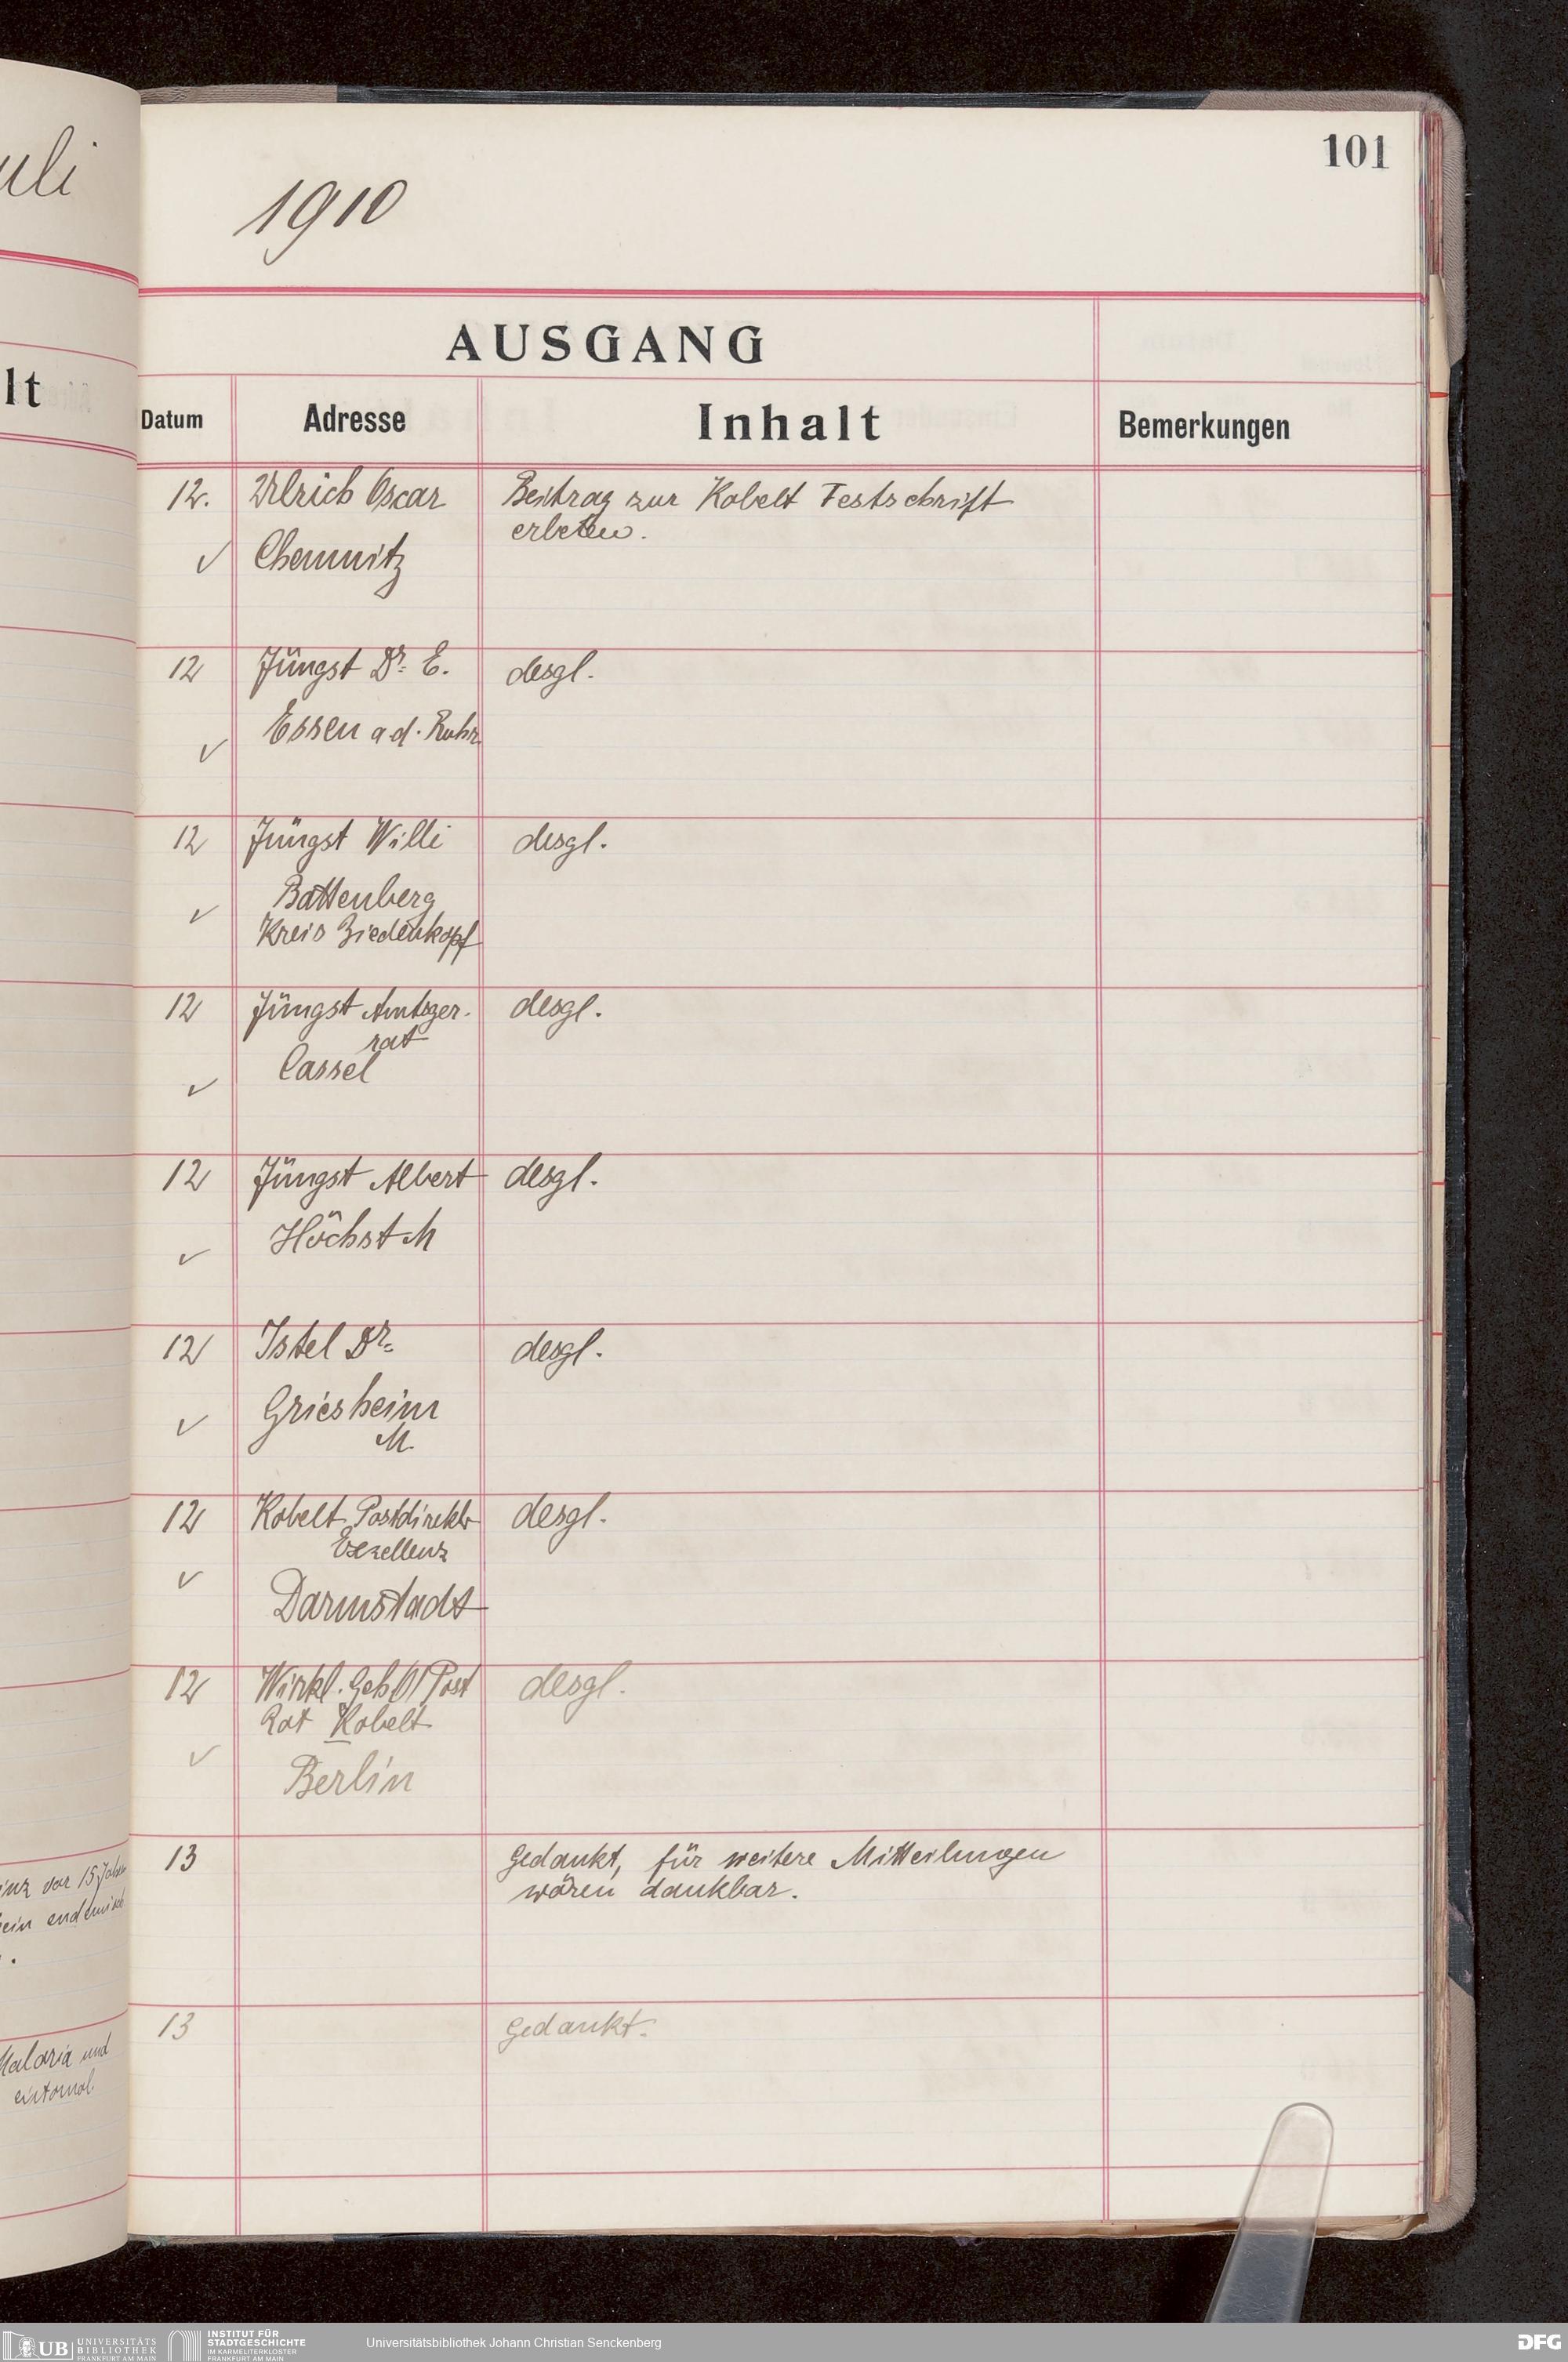 uli
lt
inz vor 15 Jahren
ein endemisch
.
Malaria und
entomol.
101
1910
AUSGANG
Datum Adresse Inhalt Bemerkungen
12. Ulrich Oscar Beitrag zur Kobelt Festschrift
erbeten.
✓ Chemnitz
12 Jüngst Dr. E. desgl.
✓ Essen a d. Ruhr
12 Jüngst Willi desgl.
✓ Battenberg
Kreis Biedenkopf
12 Jüngst Amtsger. desgl.
rat
✓ Cassel
12 Jüngst Albert desgl.
✓ Höchst M
12 Istel Dr. desgl.
✓ Griesheim
M.
12 Kobelt Postdirektor desgl.
Exzellenz
✓ Darmstadt
12 Wirkl. Geh Ob Post desgl.
Rat Kobelt
✓ Berlin
13 Gedankt, für weitere Mitteilungen
wären dankbar.
13 Gedankt.
UB UNIVERSITÄTS
BIBLIOTHEK
FRANKFURT AM MAIN
INSTITUT FÜR
STADTGESCHICHTE
IM KARMELITERKLOSTER
FRANKFURT AM MAIN
Universitätsbibliothek Johann Christian Senckenberg
DFG